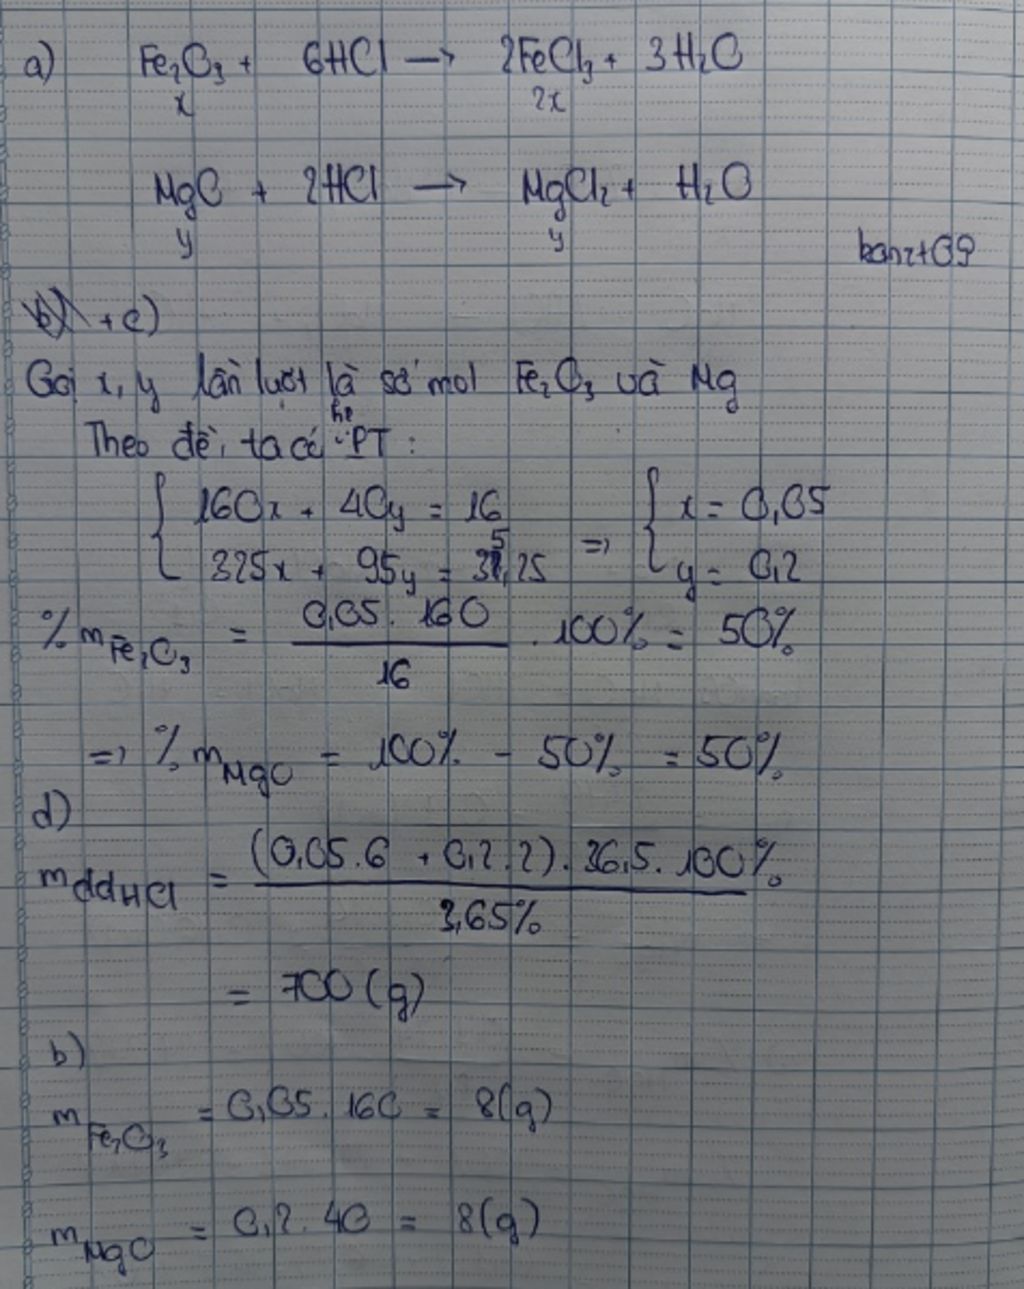 a) Fe₂O₃ + 6HCl → 2FeCl₃ + 3H₂O
x 2x
MgO + 2HCl → MgCl₂ + H₂O
y y
kanz+09
b) + c)
Gọi x, y lần lượt là số mol Fe₂O₃ và Mg
Theo đề, ta có hệ PT:
{ 160x + 40y = 16 => { x = 0,05
325x + 95y = 35,25 y = 0,2
%mFe₂O₃ = 0,05. 160 / 16 . 100% = 50%
=> %mMgO = 100% - 50% = 50%
d)
mddHCl = (0,05.6 + 0,2.2). 36,5. 100% / 3,65%
= 700 (g)
b)
mFe₂O₃ = 0,05. 160 = 8(g)
mMgO = 0,2. 40 = 8(g)